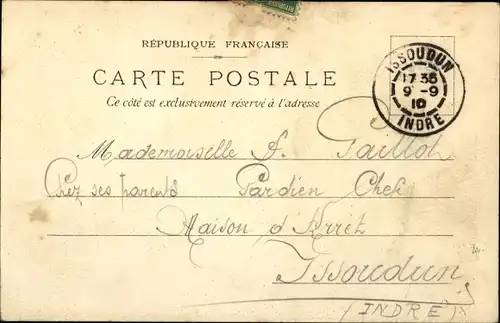 RÉPUBLIQUE FRANÇAISE
CARTE POSTALE
Ce côté est exclusivement réservé à l'adresse
ISSOUDUN
17 35
9 -9
10
INDRE
Mademoiselle A.
Chez ses parents Gardien Chef
Maison d'Arrêt
Issoudun
(INDRE)